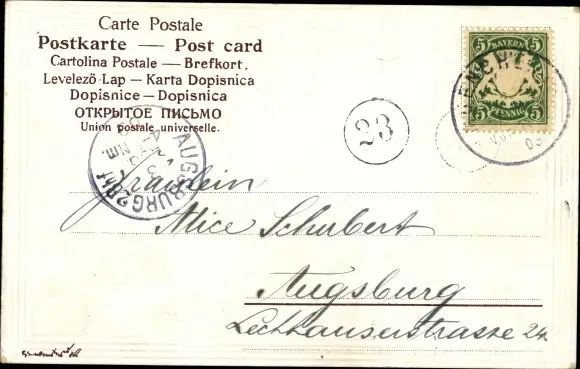 Carte Postale
Postkarte — Post card
Cartolina Postale — Brefkort.
Levelező-Lap — Karta Dopisnica
Dopisnice — Dopisnica
ОТКРЫТОЕ ПИСЬМО
Union postale universelle.
5 BAYERN 5
PFENNIG
03
23
AUGSBURG
NM.
Fräulein
Alice Schubert
Augsburg
Lechhauserstrasse 24.